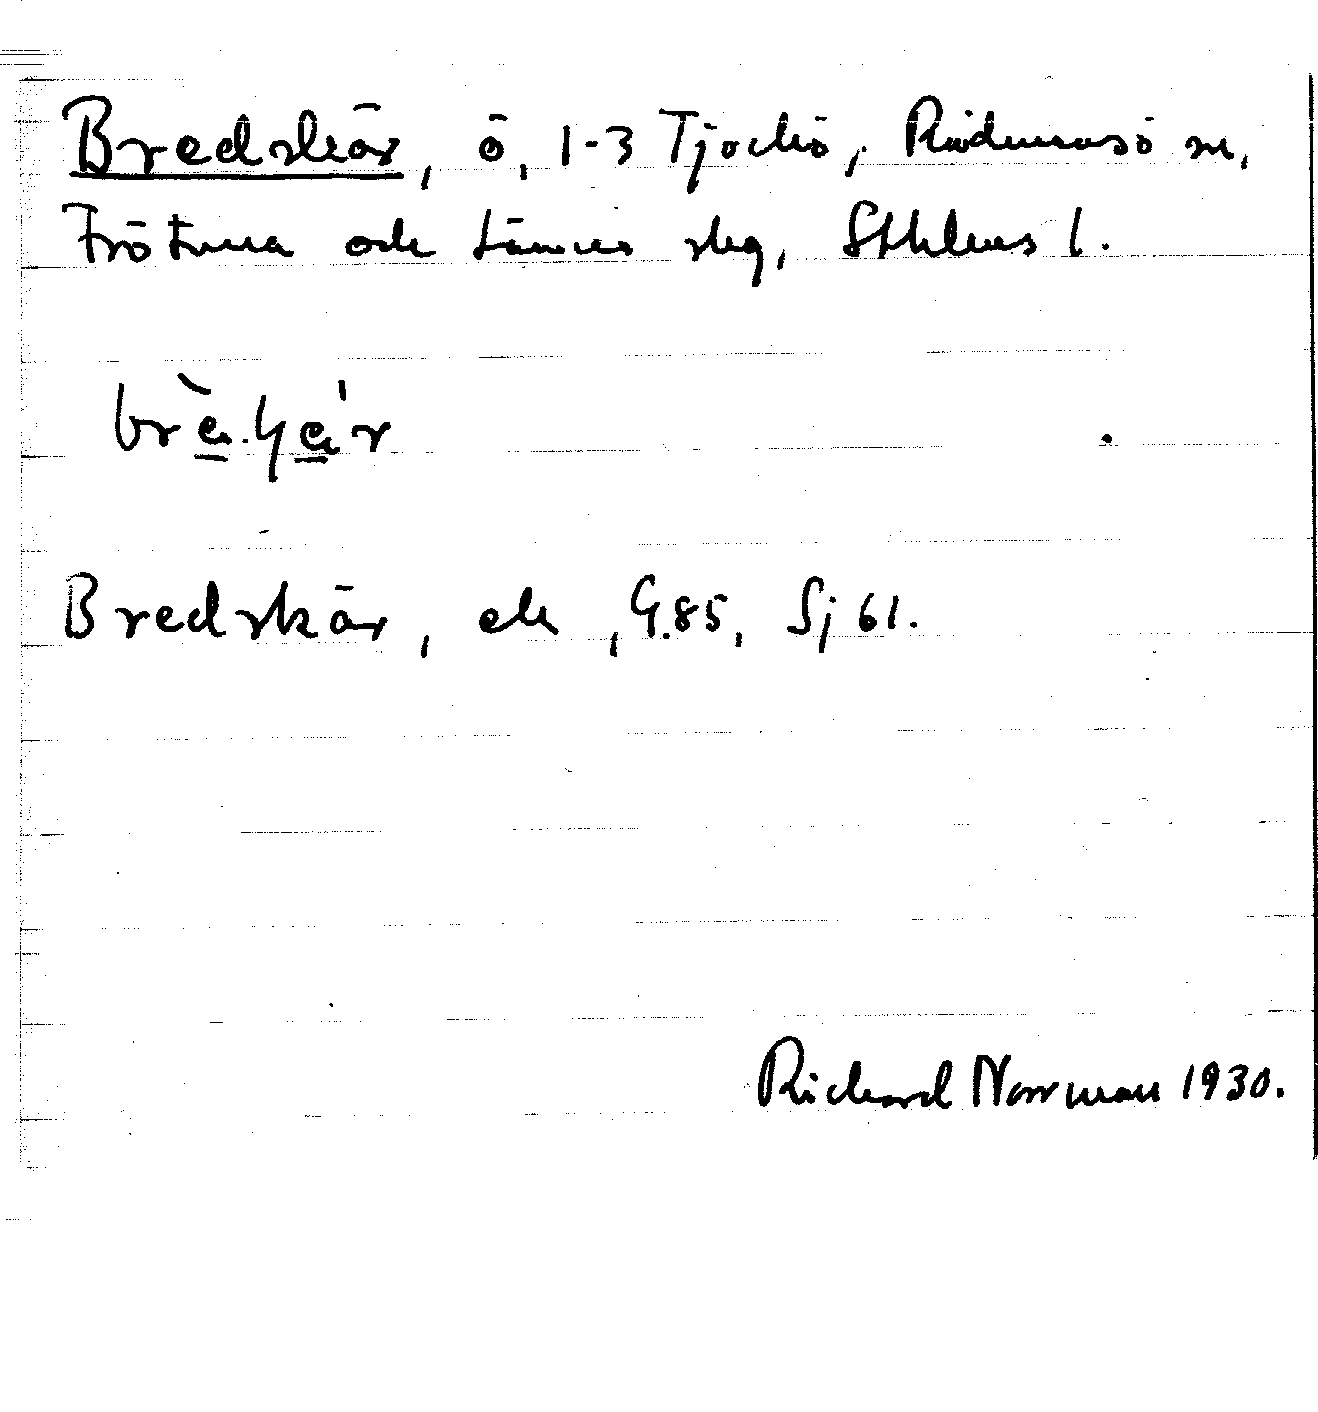 Bredskär, ö, 1-3 Tjockö, Rådmansö sn,
Frötuna och Länna skg, Sthlms l.
Bredskär, ek, G.85, Sj 61.
Richard Norrman 1930.